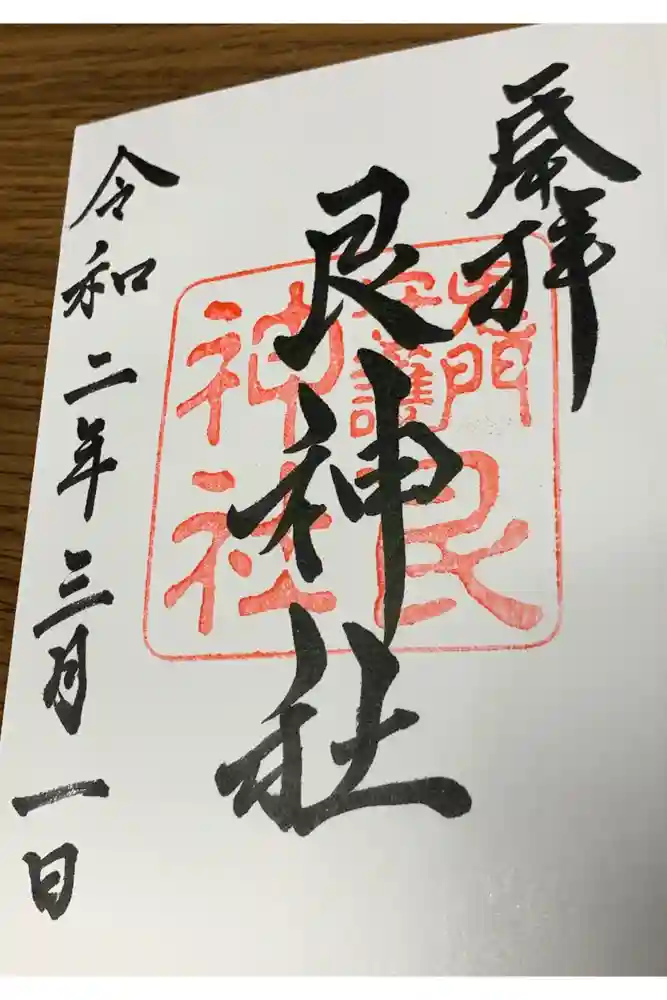 奉拝
艮神社
鬼門
守護
艮
神社
令和二年三月一日